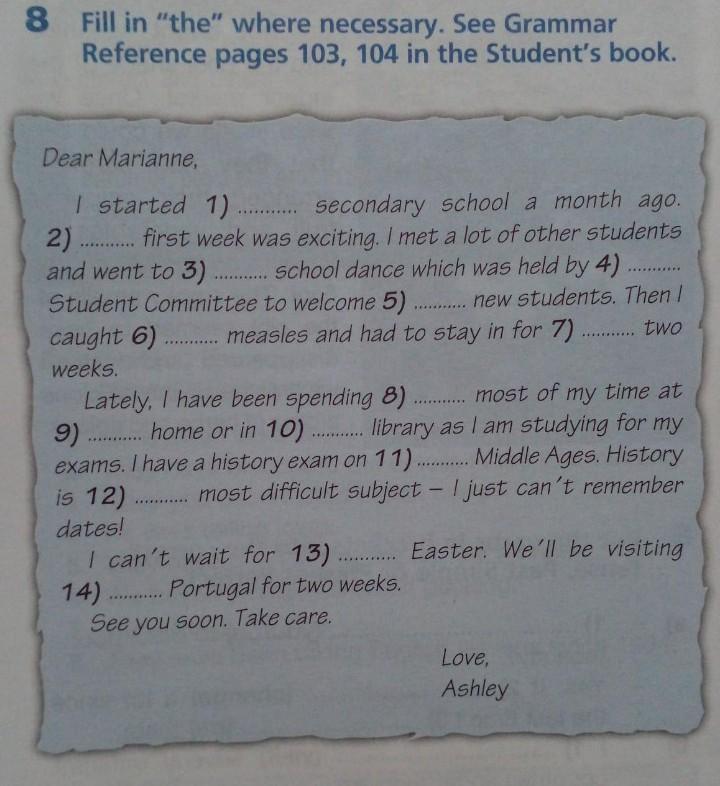 8 Fill in “the” where necessary. See Grammar
Reference pages 103, 104 in the Student’s book.
Dear Marianne,
I started 1) ........... secondary school a month ago.
2) ........... first week was exciting. I met a lot of other students
and went to 3) ........... school dance which was held by 4) ...........
Student Committee to welcome 5) ........... new students. Then I
caught 6) ........... measles and had to stay in for 7) ........... two
weeks.
Lately, I have been spending 8) ........... most of my time at
9) ........... home or in 10) ........... library as I am studying for my
exams. I have a history exam on 11) ........... Middle Ages. History
is 12) ........... most difficult subject – I just can’t remember
dates!
I can’t wait for 13) ........... Easter. We’ll be visiting
14) ........... Portugal for two weeks.
See you soon. Take care.
Love,
Ashley